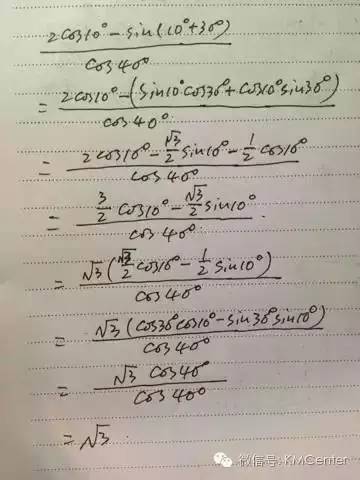 2cos10°-sin(10°+30°)
cos40°
= 2cos10°-(sin10°cos30°+cos10°sin30°)
cos40°
= 2cos10°-√3/2 sin10°-1/2 cos10°
cos40°
= 3/2 cos10°-√3/2 sin10°
cos40°
= √3(√3/2 cos10°-1/2 sin10°)
cos40°
= √3(cos30°cos10°-sin30°sin10°)
cos40°
= √3 cos40°
cos40°
=√3
微信号: KMCenter